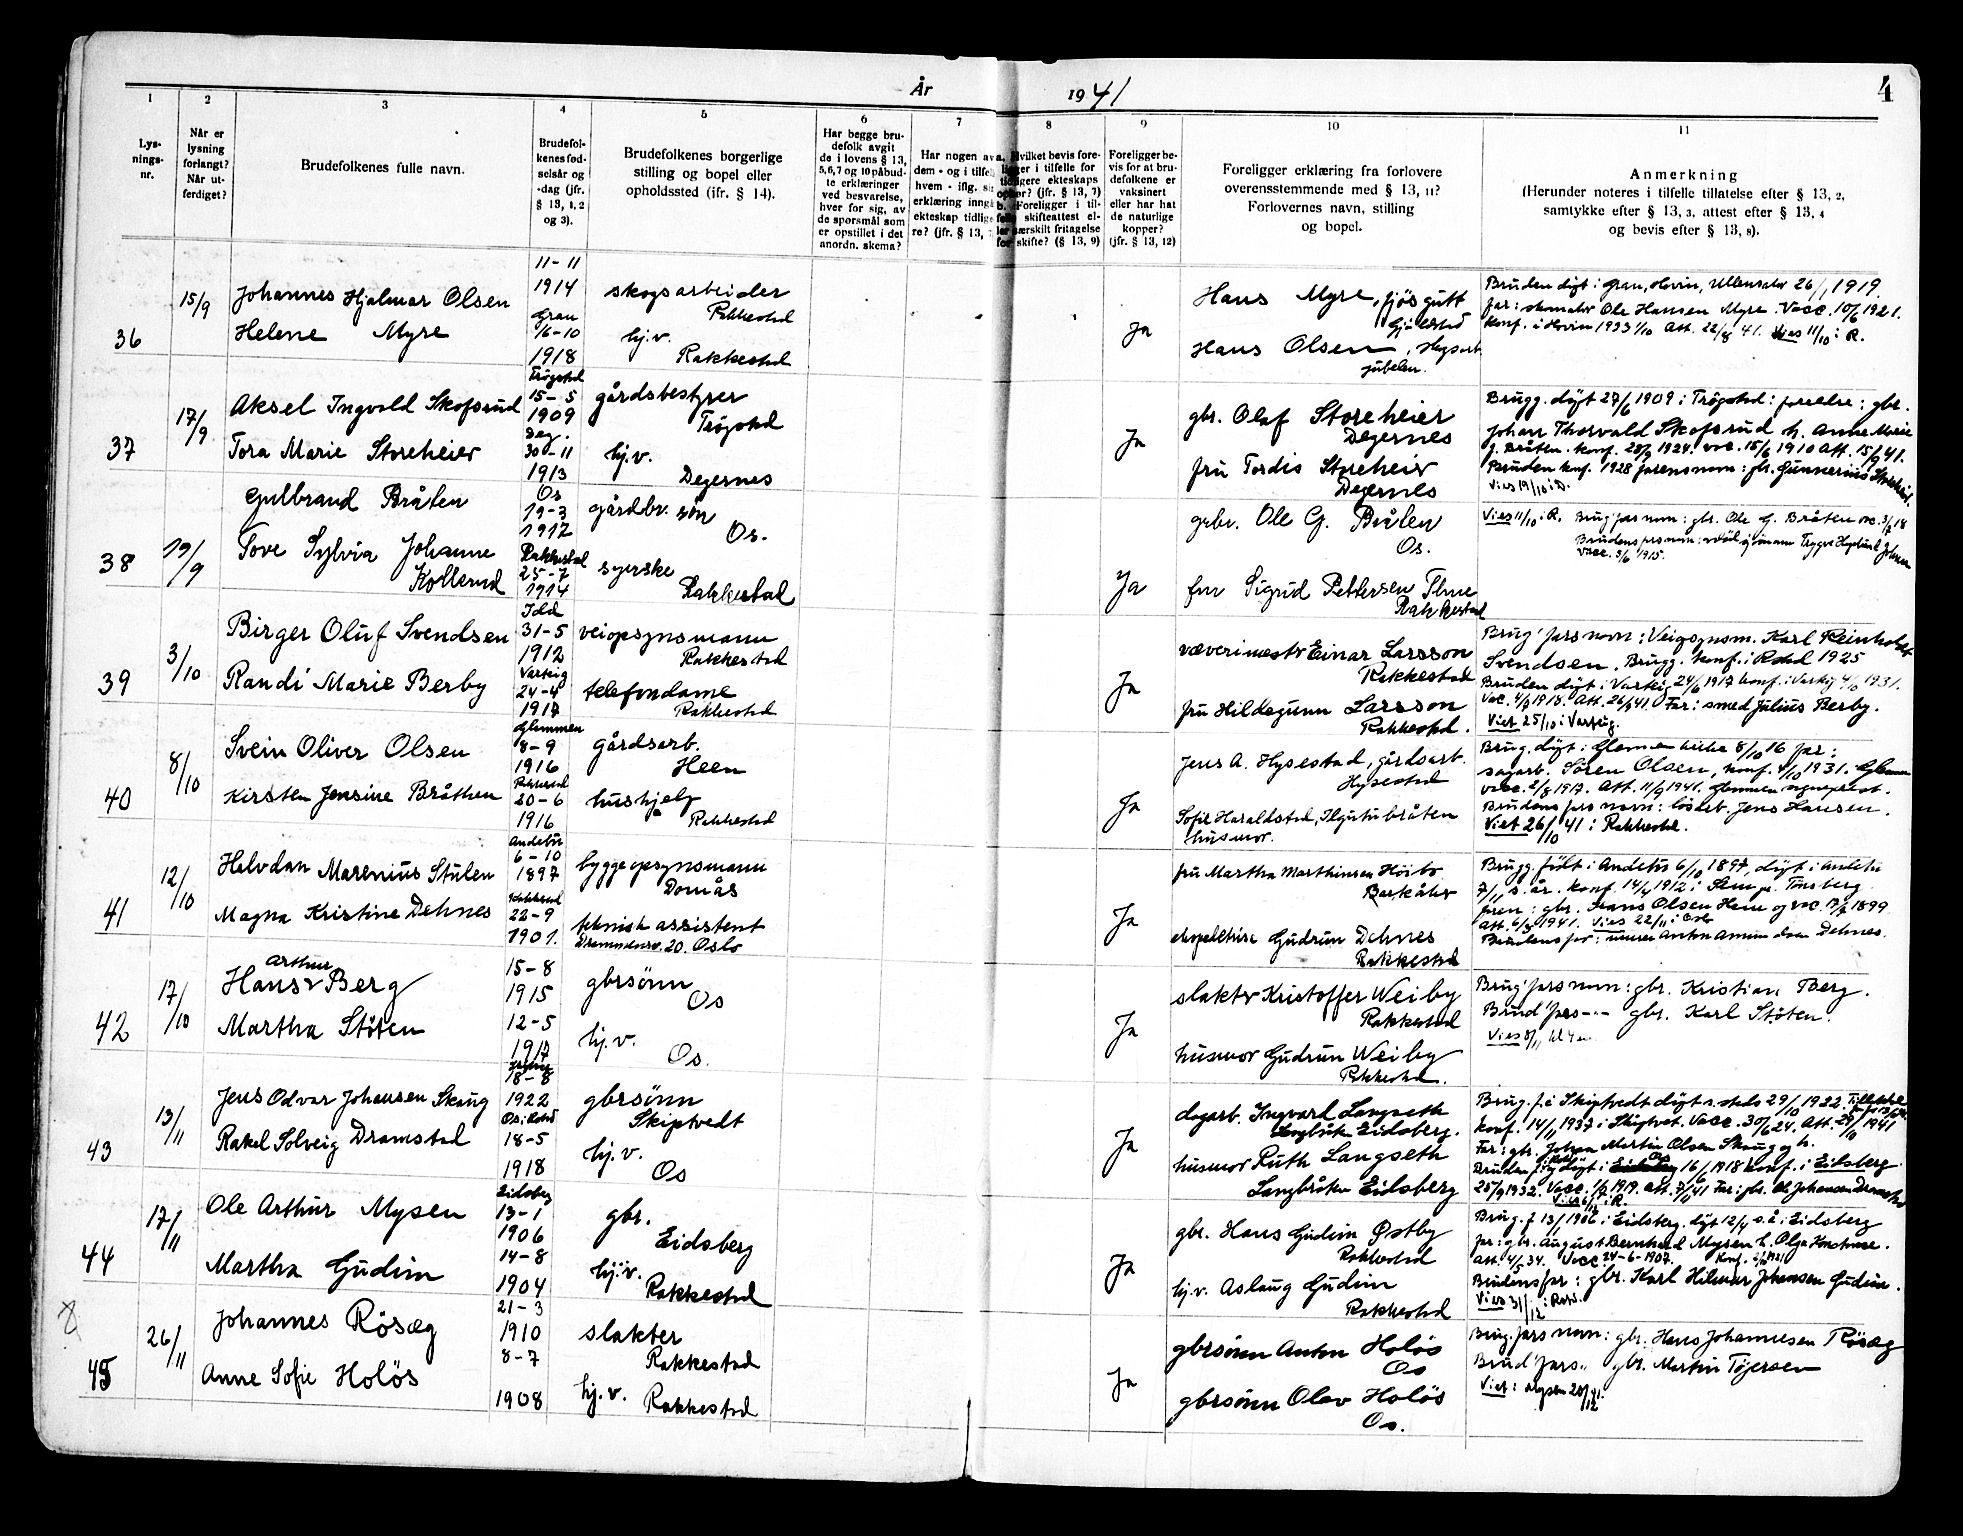 År 1941
4
1
2
3
4
5
6
7
8
9
10
11
Lys-
nings-
nr.
Når er
lysning
forlangt?
Når ut-
ferdiget?
Brudefolkenes fulle navn.
Brudefol-
kenes fød-
selsår og
-dag (jfr.
§ 13, 1, 2
og 3).
Brudefolkenes borgerlige
stilling og bopel eller
opholdssted (jfr. § 14).
Har begge bru-
defolk avgit
de i lovens § 13,
5, 6, 7 og 10 påbud-
te erklæringer
ved besvarelse,
hver for sig, av
de spørsmål som
er opstillet i det
anordn. skema?
Har nogen av
dem - og i tilfelle
hvem - iflg. sin
erklæring inngå
ekteskap tidlige
re? (jfr. § 13,
Hvilket bevis fore-
ligger i tilfelle for
tidligere ekteskaps
ophør? (jfr. § 13, 7)
b. Foreligger i til-
felle skifteattest el-
ler særskilt fritagelse
for skifte? (§ 13, 9)
Foreligger be-
vis for at bru-
defolkene er
vaksinert
eller har hat
de naturlige
kopper?
(jfr. § 13, 12)
Foreligger erklæring fra forlovere
overensstemmende med § 13, 11?
Forlovernes navn, stilling
og bopel.
Anmerkning
(Herunder noteres i tilfelle tillatelse efter § 13, 2,
samtykke efter § 13, 3, attest efter § 13, 4
og bevis efter § 13, 8).
36
15/9
Johannes Hjalmar Olsen
Helene Myre
11-11
1914
Gran
1/6-10
1918
skogsarbeider
Rakkestad
hj.v.
Rakkestad
Ja
Hans Myre, fjøsgutt
Gjulestad
Hans Olsen,
Bruden døpt i Gran, Hovin, Ullensaker 26/1 1919.
far: skomaker Ole Hansen Myre. Vacc. 10/6 1921.
Konf. i Hovin 1933 1/10 Att. 22/8 41. Vies 11/10 i R.
37
17/9
Aksel Ingvald Skofsrud
Tora Marie Storeheier
Trøgstad
15-5
1909
Deg.
30-11
1913
gårdsbestyrer
Trøgstad
hj.v.
Degernes
Ja
gbr. Olaf Storeheier
Degernes
fru Tordis Storeheier
Degernes
Brugg. døpt 27/6 1909 i Trøgstad: foreldre: gbr.
Johan Thorvald Skofsrud h. Anne Marie
f. Bråten. konf. 28/9 1924. vac. 15/6 1910 Att. 15/9 41.
Bruden konf. 1928 farens navn: gbr. Gunnerius Storeheier.
Vies 19/10 i D.
38
19/9
Gulbrand Bråten
Tove Sylvia Johanne
Kollerud
Os
19-3
1912
Rakkestad
25-7
1914
gårdbr. søn
Os.
syerske
Rakkestad
Ja
gbr. Ole G. Bråten
Os.
fru Sigrid Pettersen
Rakkestad
Vies 11/10 i R. Brug' fars navn: gbr. Ole G. Bråten vac. 3/8 18
39
3/10
Birger Oluf Svendsen
Randi Marie Berby
Idd
31-5
1912
Varteig
24-4
1917
veiopsynsmann
Rakkestad
telefondame
Rakkestad
Ja
værerimestr Einar Larsson
Rakkestad
fru Hildegunn Larsson
Rakkestad.
Brug' fars navn: Veiopsynsm. Karl Reinholdt
Svendsen. Brugg. konf. i Rstad 1925
Bruden døpt i Varteig 24/6 1917 konf. i Varteig 4/10 1931.
Vac. 4/9 1918. Att. 26/9 41 Far: smed Julius Berby.
Viet 25/10 i Varteig.
40
8/10
Svein Oliver Olsen
Kirsten Jensine Bråthen
Glemmen
8-9
1916
Rakkestad
20-6
1916
gårdsarb.
Heen
hushjelp
Rakkestad
Ja
Jens A. Hysestad, gårdsarb.
Hysestad
Sofie Haraldstad,
husmor.
Brug. døpt i Glemmen kirke 8/10 16 far:
sagarb. Søren Olsen, konf. 4/10 1931. Glemmen
vacc. 2/8 1917. Att. 11/9 1941. Glemmen sogneprest.
Brudens fars navn: løsarb. Jens Hansen.
Viet 26/10 41 i Rakkestad.
41
12/10
Halvdan Marenius Stulen
Magna Kristine Dehnes
Andebu
6-10
1897
Rakkestad
22-9
1901.
byggeopsynsmann
Domås
teknisk assistent
Drammensv. 20. Oslo
Ja
fru Martha Marthinsen Høibo
Gudrun Dehnes
Rakkestad
Brugg. født i Andebu 6/10 1897, døpt i Andebu
7/11 s. år. konf. 14/4 1912 i Sem pr. Tønsberg
faren: gbr. Hans Olsen Hem og vac. 17/7 1899
Att. 6/8 1941. Vies 22/11 i Oslo
Brudens far: murer Anton Amundsen Dehnes.
42
17/10
Arthur
Hans Berg
Martha Støten
15-8
1915
12-5
1917
gbrsønn
Os
hj.v.
Os.
Ja
slakter Kristoffer Weiby
Rakkestad
husmor Gudrun Weiby
Rakkestad.
Brug' fars navn: gbr. Kristian Berg.
Brud' fars -"- gbr. Karl Støten.
43
13/11
Jens Odvar Johansen Skaug
Rakel Solveig Dramstad
18-8
1922
Os i Rstad
18-5
1918
gbrsønn
Skiptvedt
hj.v.
Os
Ja
dagarb. Ingvarl Langseth
Eidsberg.
husmor Ruth Langseth
Langbråten Eidsberg
Brug. f. i Skiptvedt døpt s. steds 29/10 1922.
konf. 14/11 1937 i Skiptvet. Vacc. 30/6 24. Att. 29/10 1941
Far: gbr. Johan Martin Olsen Skaug og h.
Bruden døpt i Os 16/6 1918 konf. i Eidsberg
25/9 1932. Vacc. 1/7 1919. Att. 7/11 41 Far: gbr. Ole Johansen Dramstad
44
17/11
Ole Arthur Mysen
Martha Gudim
Eidsberg
13-1
1906
14-8
1904
gbr.
Eidsberg
hj.v.
Rakkestad
Ja
gbr. Hans Gudim Østby
Rakkestad
hj.v. Aslaug Gudim
Rakkestad
Brug. f 13/1 1906 i Eidsberg. døpt 12/4 s.å. i Eidsberg
far: gbr. August Bernhard Mysen h. Olga Konstanse.
Att. 4/5 34. Vacc. 24-6-1907.
Brudens far: gbr. Karl Hilmar Johansen Gudim.
Vies 31/12 i Rst.
45
26/11
Johannes Rösæg
Anne Sofie Holös
21-3
1910
8-7
1908
slakter
Rakkestad
hj.v. Rakkestad
Ja
gbrsønn Anton Holös
Os
gbrsønn Olav Holös
Os.
Brug. fars navn: gbr. Hans Johannesen Rösæg
Brud' fars " gbr. Martin Tøjersen
Viet i Mysen 28/12 41.